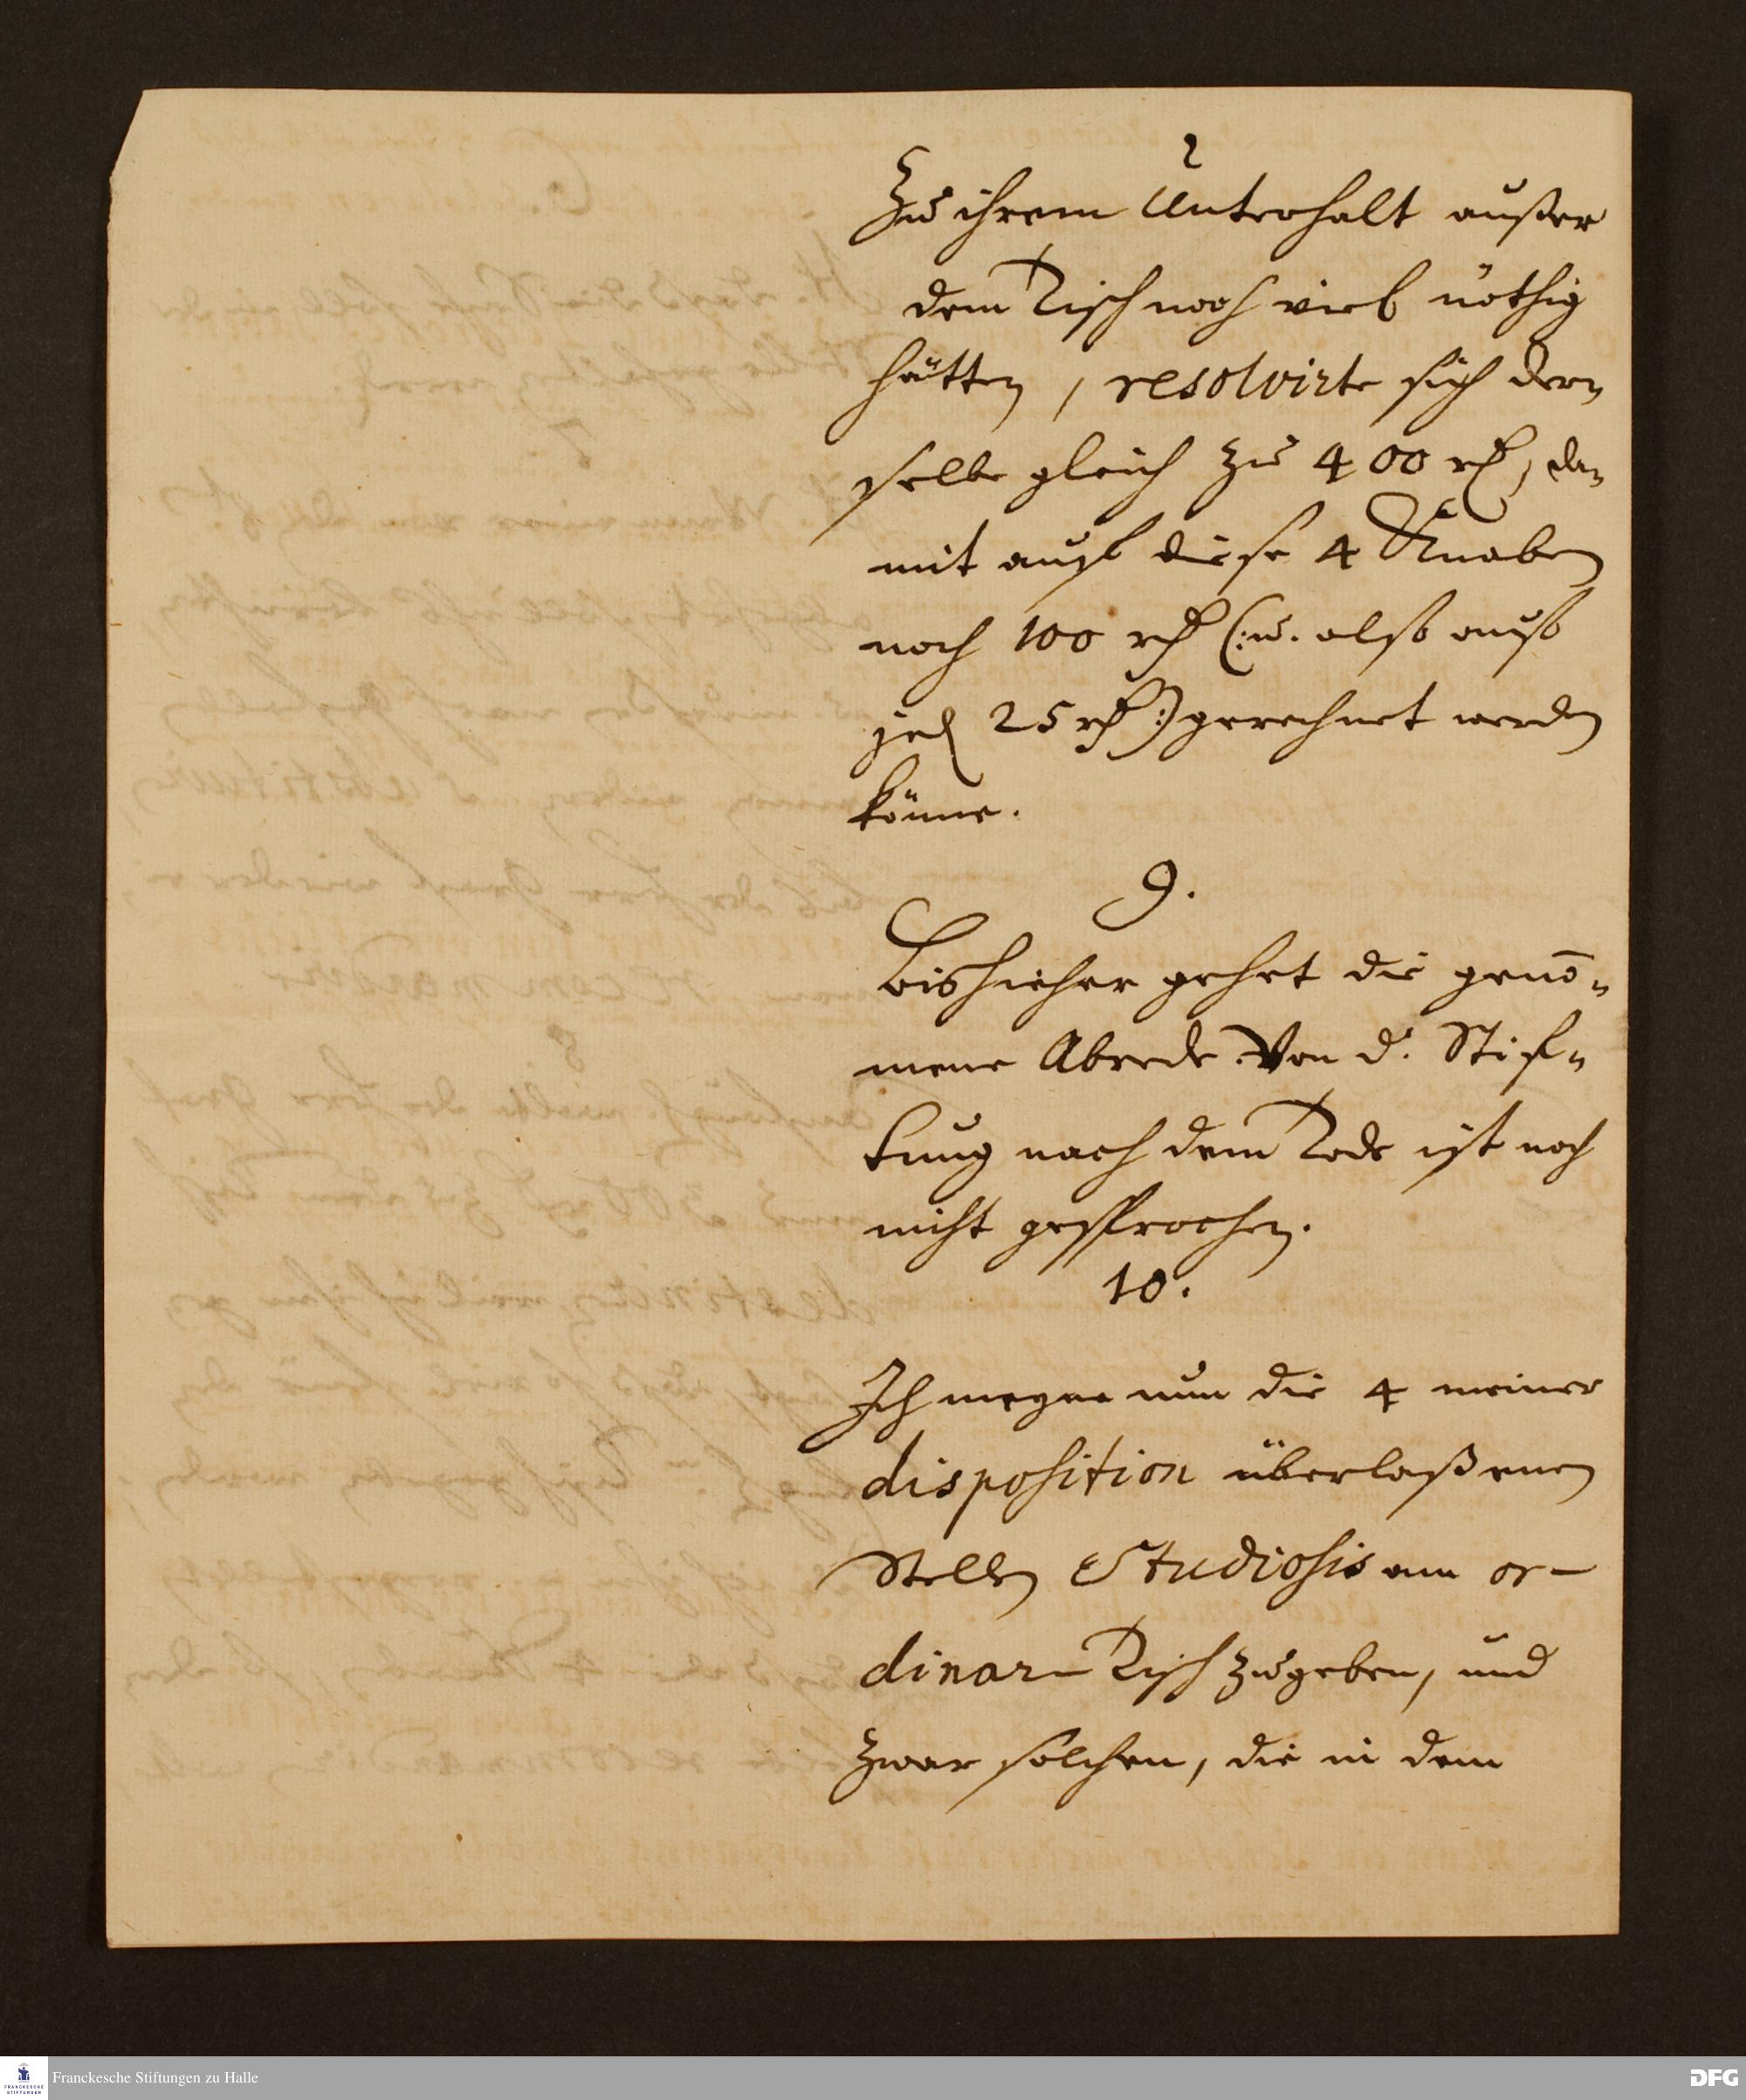 Zu ihrem Unterhalt außer
dem Tisch noch viel nöthig
hätten, resolvirte sich der-
selbe gleich zu 400 rth, da-
mit auf diese 4 Knaben
noch 100 rth (: u. also auf
jed 25 rth :) gerechnet werden
könne.
9.
Bishieher gehet die genō-
mene Abrede. Von d. Stif-
tung nach dem Tode ist noch
nicht gesprochen.
10.
Ich meyne nun die 4 meiner
disposition überlaßenen
Stellen Studiosis am or-
dinar-Tisch zugeben, und
zwar solchen, die in dem
Franckesche Stiftungen zu Halle
FRANCKESCHE
STIFTUNGEN
DFG